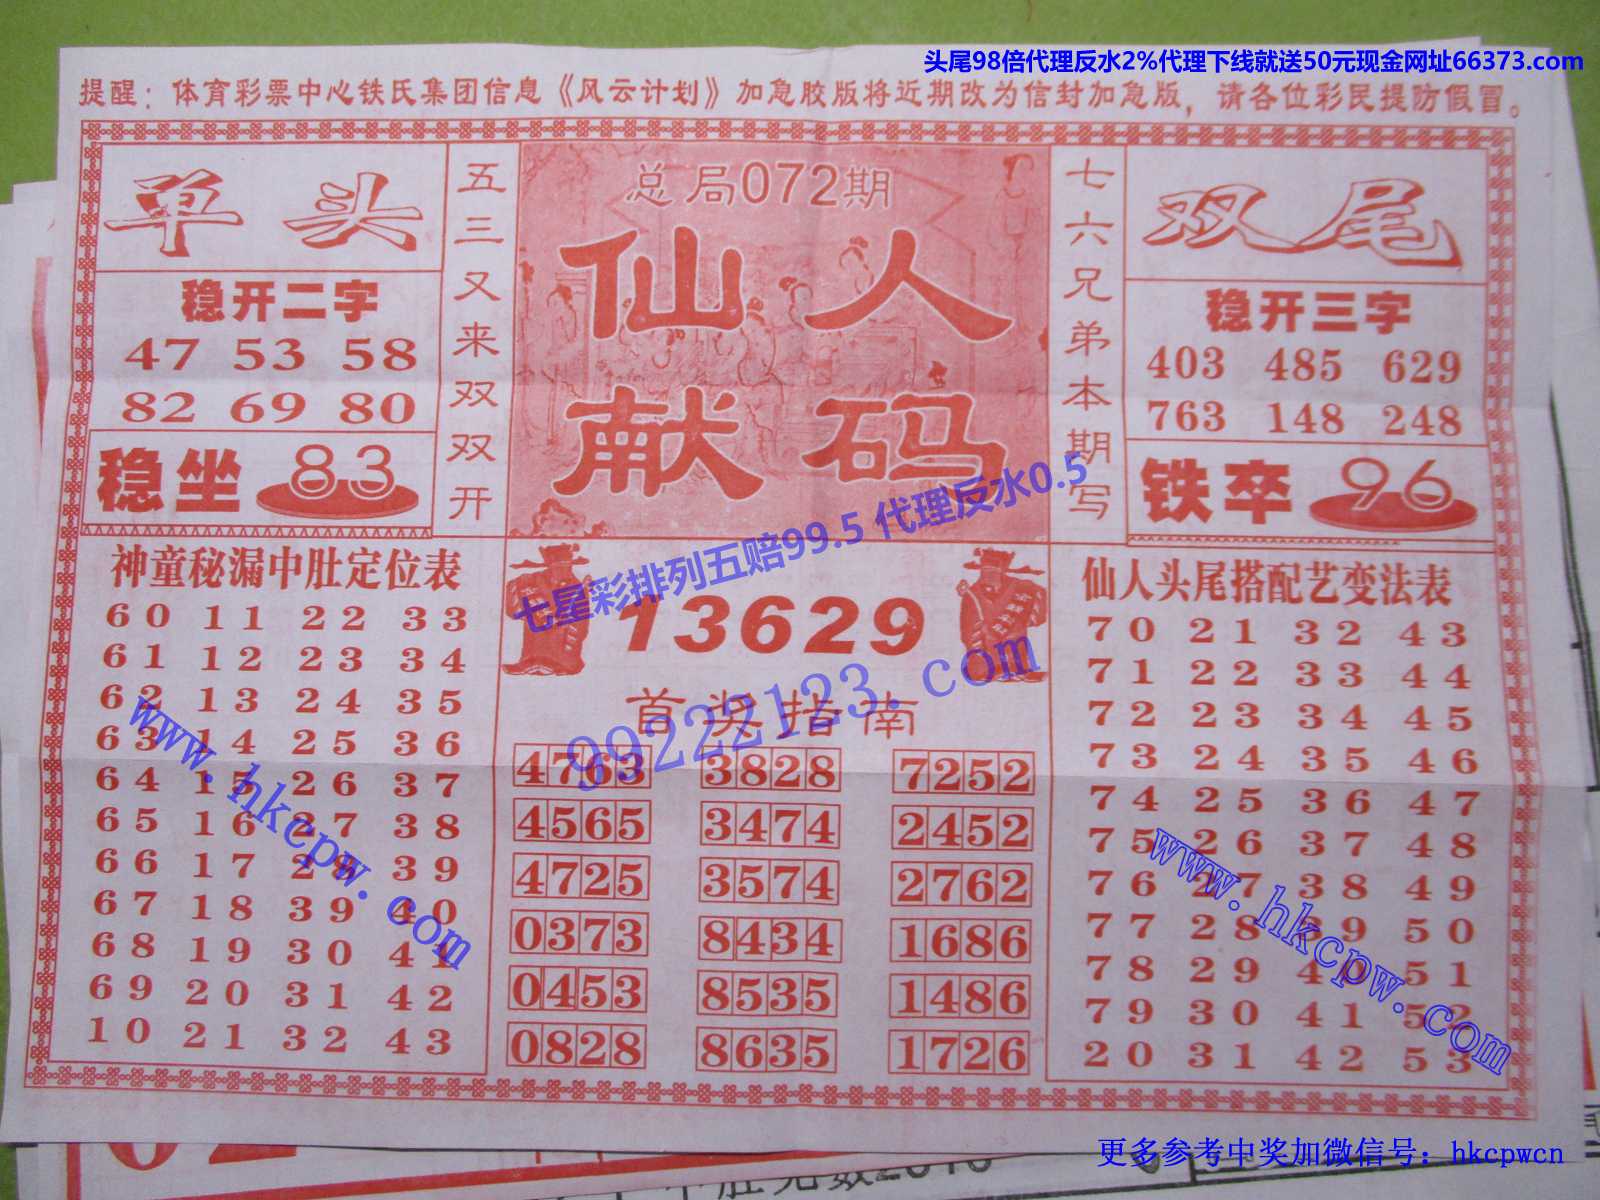 头尾98倍代理反水2%代理下线就送50元现金网址66373.com
提醒：体育彩票中心铁氏集团信息《风云计划》加急胶版将近期改为信封加急版，请各位彩民提防假冒。
单头
稳开二字
47 53 58
82 69 80
稳坐 83
五三又来双双开
总局072期
仙人
献码
七六兄弟本期写
双尾
稳开三字
403 485 629
763 148 248
铁卒 96
神童秘漏中肚定位表
60 11 22 33
61 12 23 34
62 13 24 35
63 14 25 36
64 15 26 37
65 16 27 38
66 17 28 39
67 18 39 40
68 19 30 41
69 20 31 42
10 21 32 43
七星彩排列五赔99.5 代理反水0.5
13629
99222123.com
首奖指南
4763 3828 7252
4565 3474 2452
4725 3574 2762
0373 8434 1686
0453 8535 1486
0828 8635 1726
仙人头尾搭配艺变法表
70 21 32 43
71 22 33 44
72 23 34 45
73 24 35 46
74 25 36 47
75 26 37 48
76 27 38 49
77 28 39 50
78 29 40 51
79 30 41 52
20 31 42 53
www.hkcpw.com
www.hkcpw.com
更多参考中奖加微信号：hkcpwcn